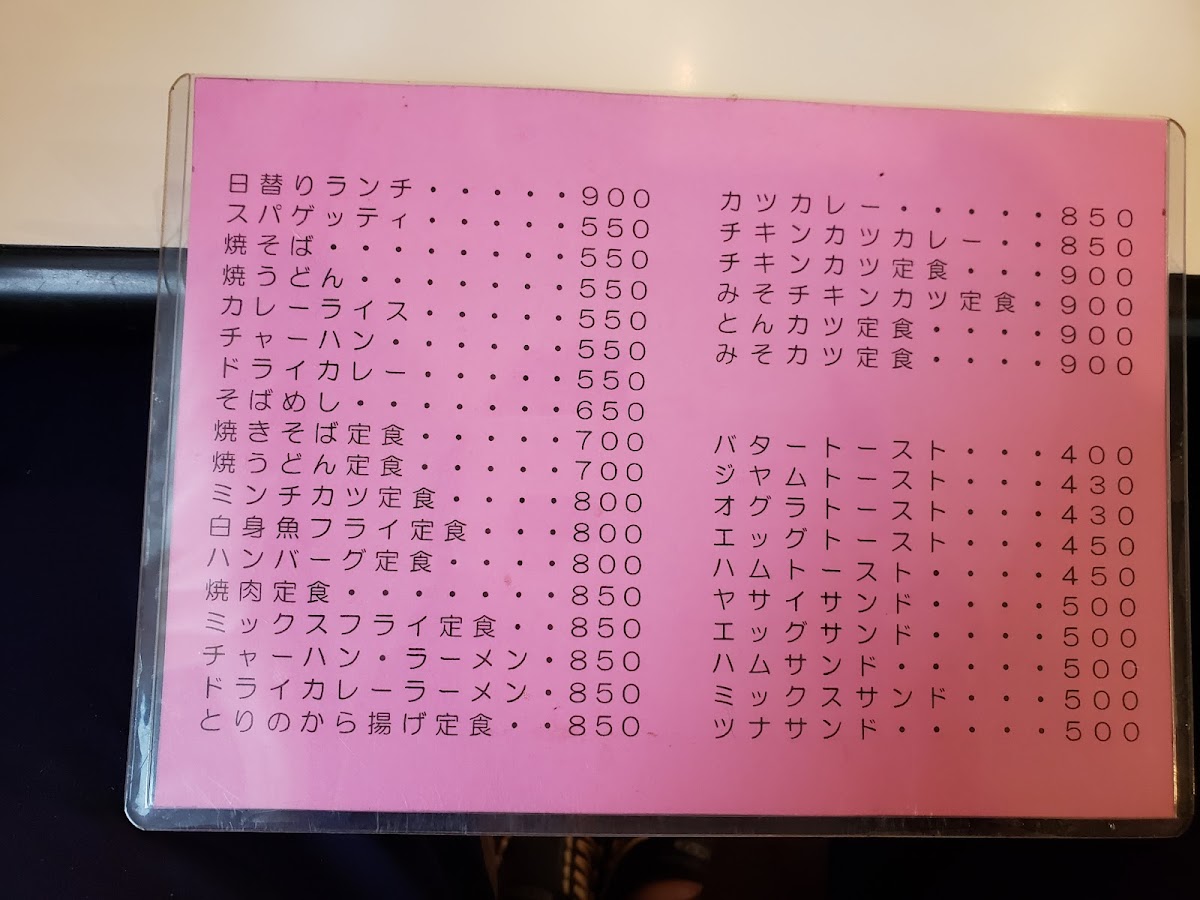 日替りランチ・・・・・900
スパゲッティ・・・・・550
焼そば・・・・・・・550
焼うどん・・・・・・550
カレーライス・・・・・550
チャーハン・・・・・・550
ドライカレー・・・・・550
そばめし・・・・・・・650
焼きそば定食・・・・・700
焼うどん定食・・・・・700
ミンチカツ定食・・・・800
白身魚フライ定食・・・800
ハンバーグ定食・・・・800
焼肉定食・・・・・・・850
ミックスフライ定食・・850
チャーハン・ラーメン・850
ドライカレーラーメン・850
とりのから揚げ定食・・850
カツカレー・・・・・850
チキンカツカレー・・850
チキンカツ定食・・・900
みそチキンカツ定食・900
とんカツ定食・・・・900
みそカツ定食・・・・900
バタートースト・・・400
ジヤムトースト・・・430
オグラトースト・・・430
エッグトースト・・・450
ハムトースト・・・・450
ヤサイサンド・・・・500
エッグサンド・・・・500
ハムサンド・・・・・500
ミックスサンド・・・500
ツナサンド・・・・・500